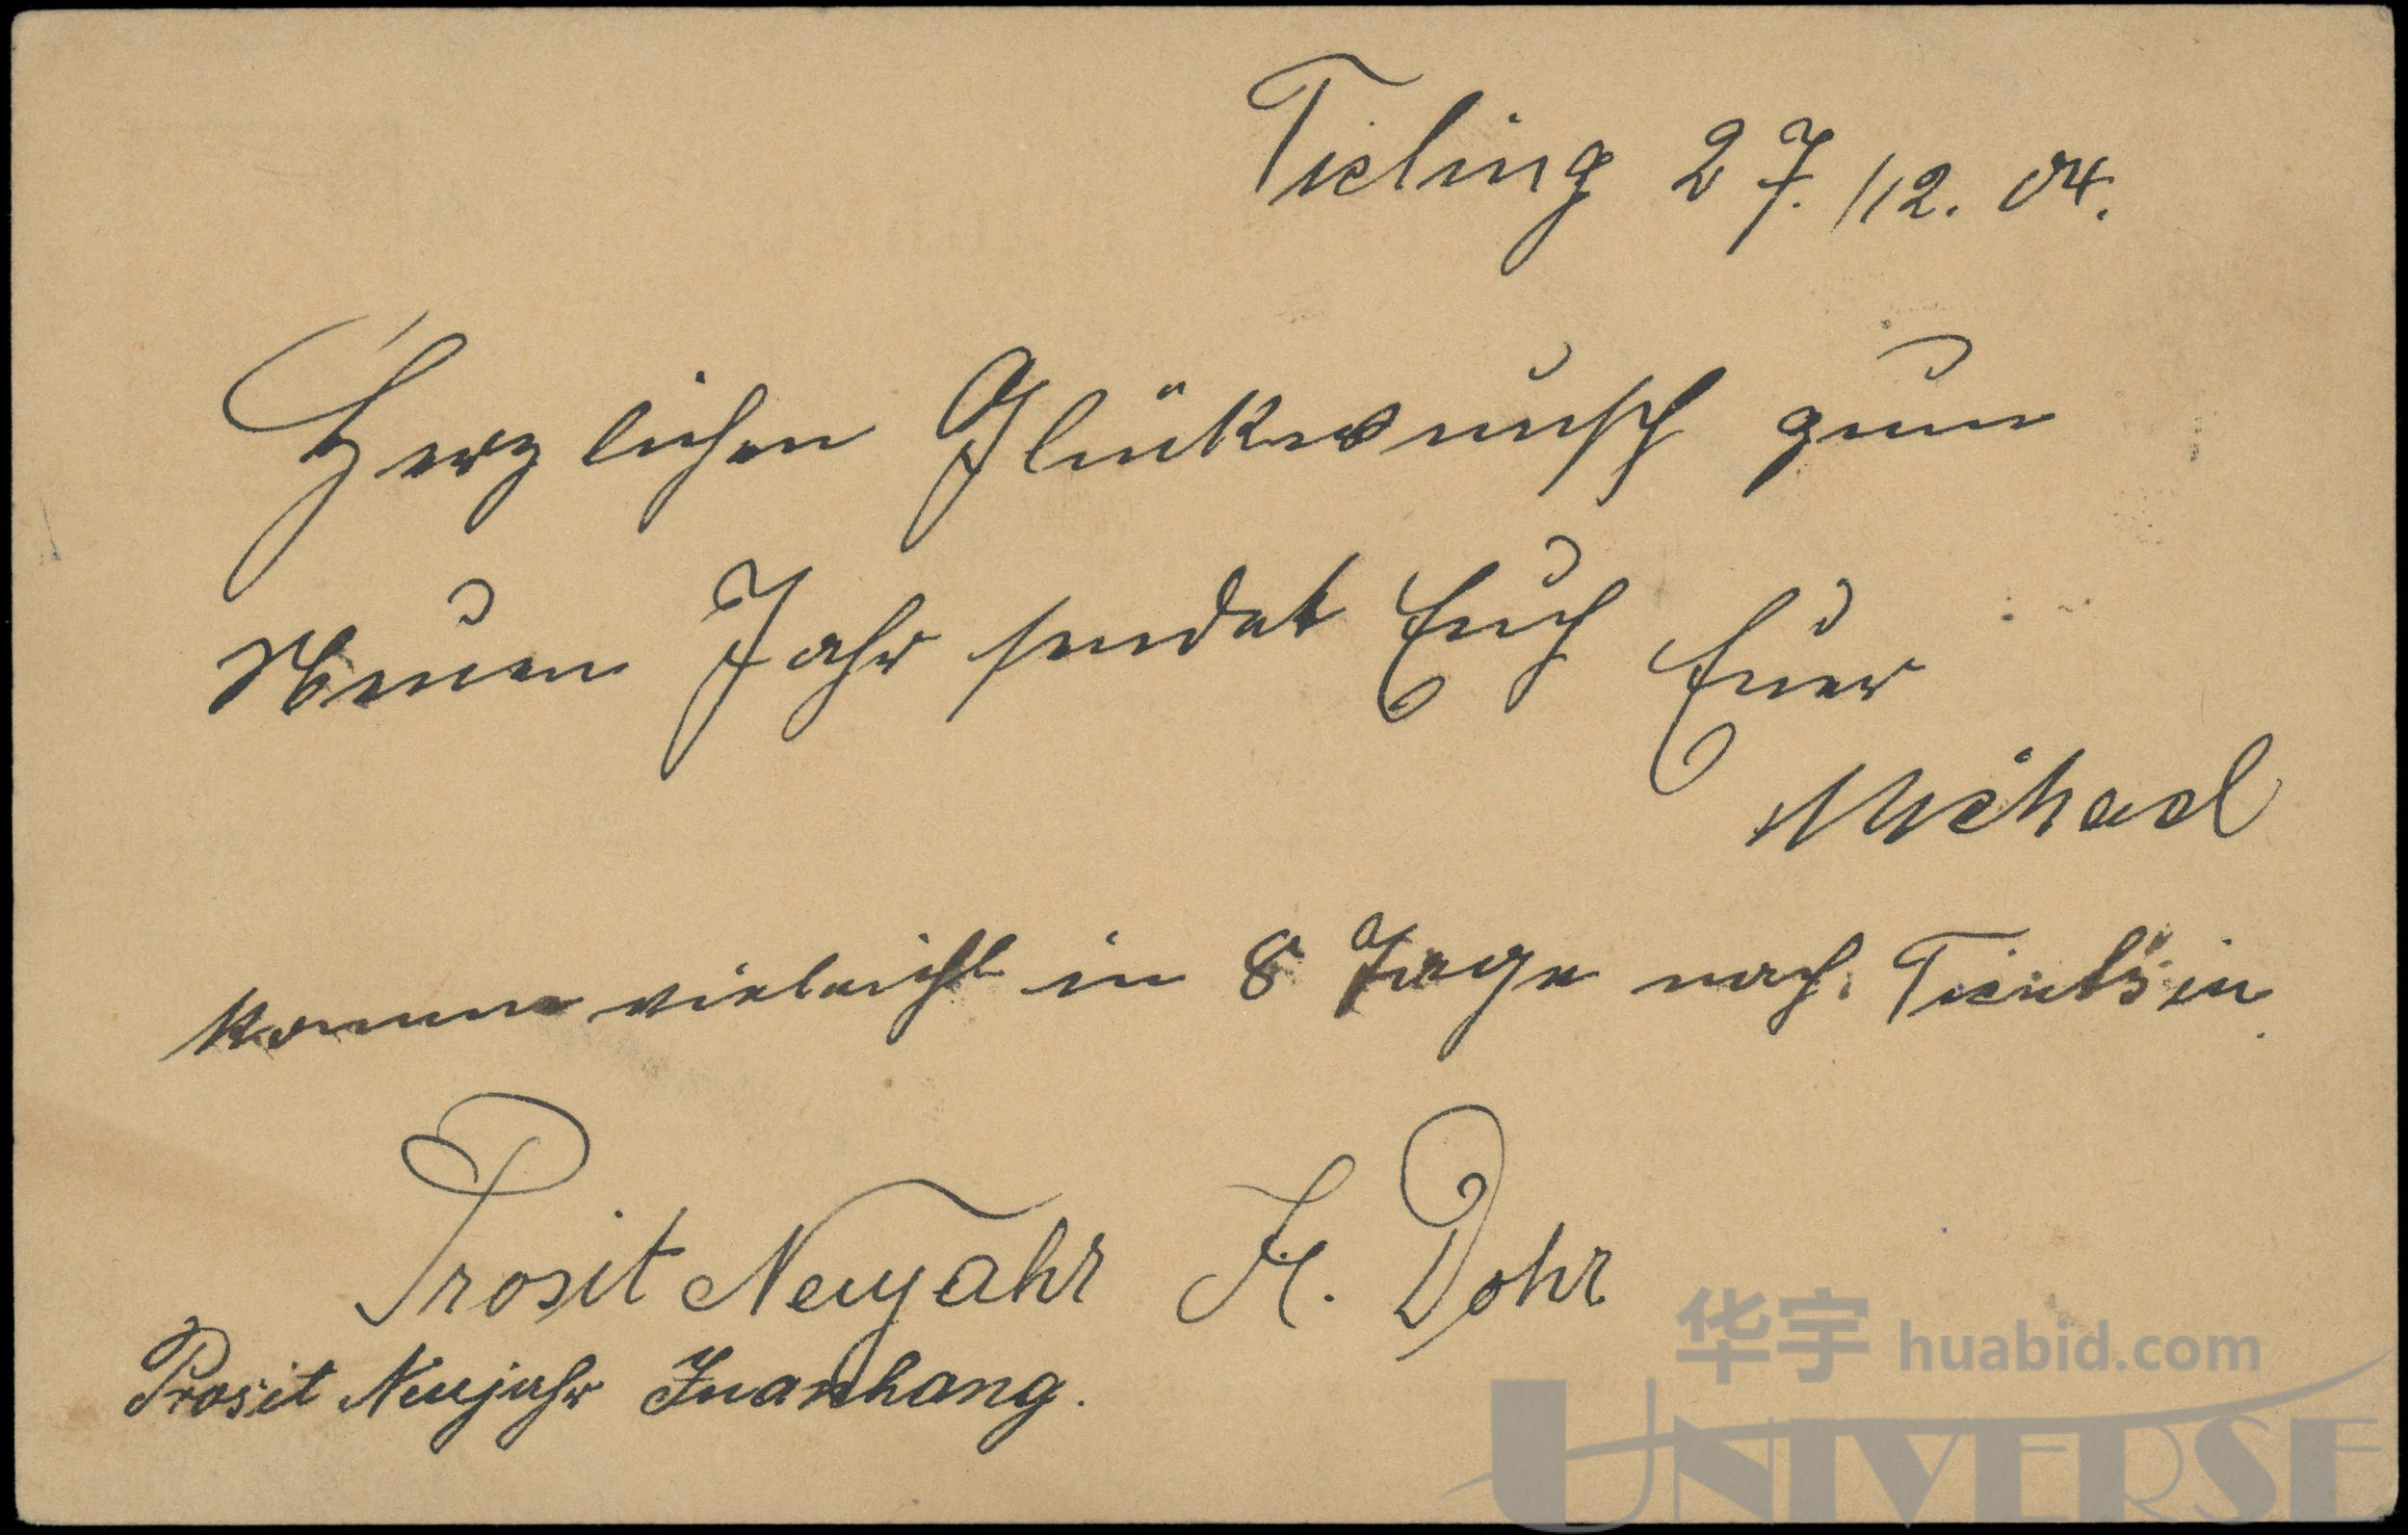 Tieling 27./12. 04.
Herzlichen Glückwunsch zum
Neuen Jahr sendet Euch Euer
Michael
Komme vieleicht in 8 Tage nach Tientsin
Prosit Neujahr H. Dohr
Prosit Neujahr Juanhang.
华宇 huabid.com
UNIVERSE